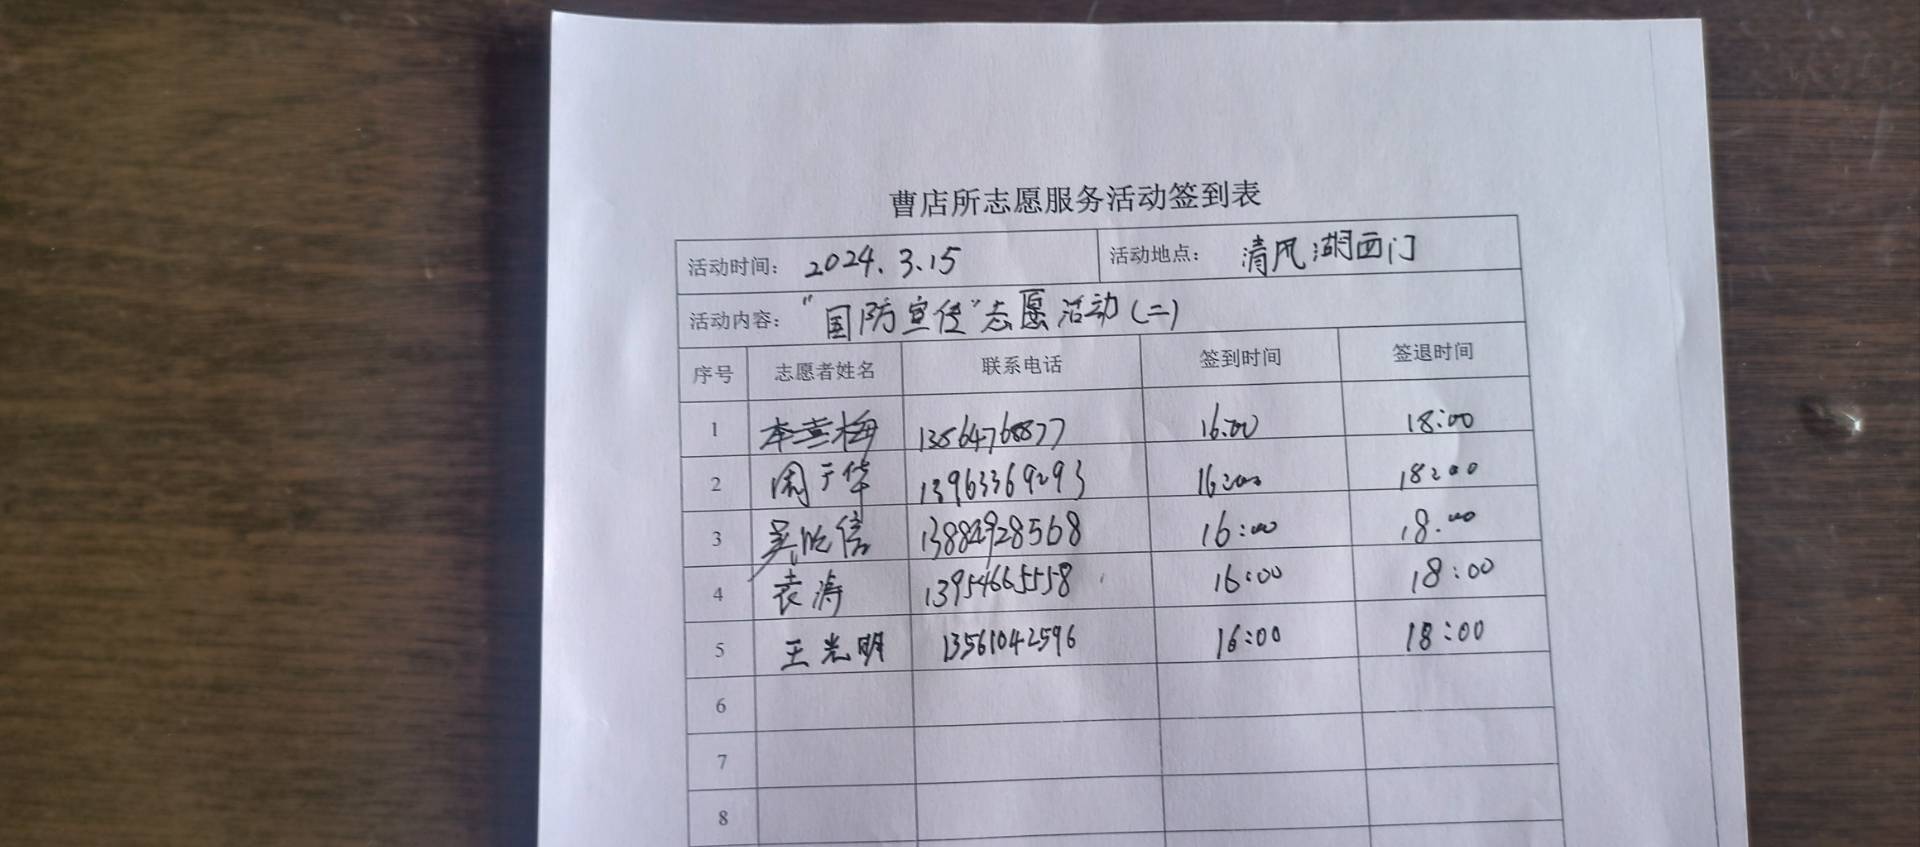 曹店所志愿服务活动签到表
活动时间： 2024.3.15 活动地点： 清风湖西门
活动内容： “国防宣传”志愿活动(二)
序号 志愿者姓名 联系电话 签到时间 签退时间
1 16:00 18:00
2 周于华 13963369293 16:00 18:00
3 16:00 18:00
4 袁涛 13954665558 16:00 18:00
5 王光明 13561042596 16:00 18:00
6
7
8